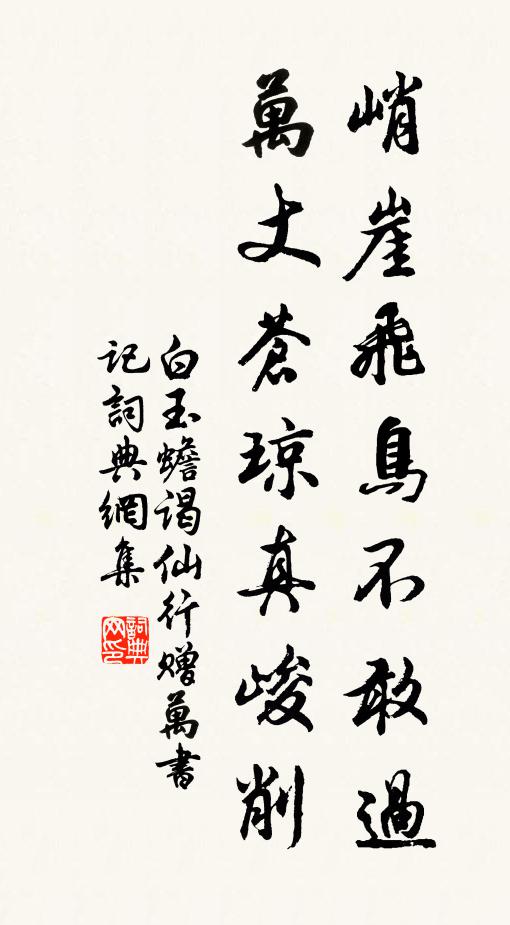 峭崖飛鳥不敢過
萬丈蒼琼真峻削
白玉蟾谒仙行赠萬書
记詞典網集
詞典网印